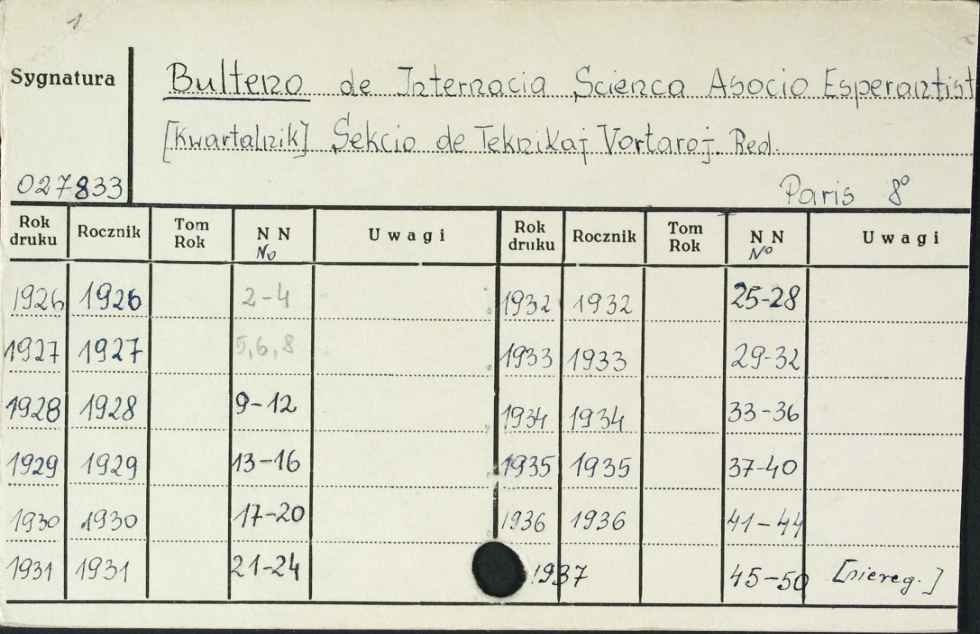 1
Sygnatura
Bulteno de Internacia Scienca Asocio Esperantist
[Kwartalnik] Sekcio de Teknikaj Vortaroj. Red.
027833
Paris 8°
Rok druku Rocznik Tom Rok NN No Uwagi Rok druku Rocznik Tom Rok NN No Uwagi
1926 1926 2-4 1932 1932 25-28
1927 1927 5,6,8 1933 1933 29-32
1928 1928 9-12 1934 1934 33-36
1929 1929 13-16 1935 1935 37-40
1930 1930 17-20 1936 1936 41-44
1931 1931 21-24 1937 45-50 [niereg.]